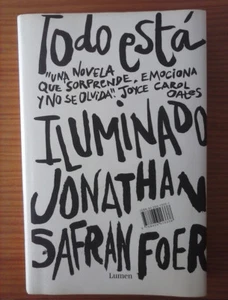 Todo está
"UNA NOVELA
QUE SORPRENDE, EMOCIONA
Y NO SE OLVIDA". JOYCE CAROL
OATES
ILUMINADO
JONATHAN
SAFRAN FOER
Lumen